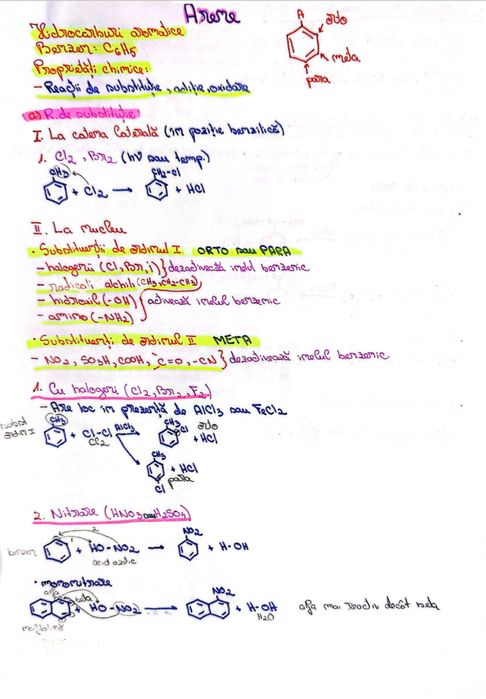 Arene
Hidrocarburi aromatice
Benzen: C6H5
Proprietăți chimice:
- Reacții de substituție, adiție, oxidare
A
orto
meta
para
a) R. de substituție
I. La catena laterală (în poziție benzilică)
1. Cl2, Br2 (hν sau temp.)
CH3 + Cl2 → CH2-Cl + HCl
II. La nucleu
• Substituenții de ordinul I ORTO sau PARA
- halogenii (Cl, Br, I) } dezactivează inelul benzenic
- radicali alchili (CH3, CH2-CH3)
- hidroxil (-OH) { activează inelul benzenic
- amino (-NH2)
• Substituenții de ordinul II META
- NO2, SO3H, COOH, C=O, -CN } dezactivează inelul benzenic
1. Cu halogeni (Cl2, Br2, F2)
- Are loc în prezență de AlCl3 sau FeCl2
subst ordin I
CH3 + Cl-Cl AlCl3 → CH3 Cl orto
Cl2 + HCl
CH3 + HCl
Cl para
2. Nitrare (HNO3 sau H2SO4)
benzen + HO-NO2 → NO2 + H-OH
acid azotic
• mononitrare
alfa
beta + HO-NO2 → NO2 + H-OH alfa mai reactiv decât beta
H2O